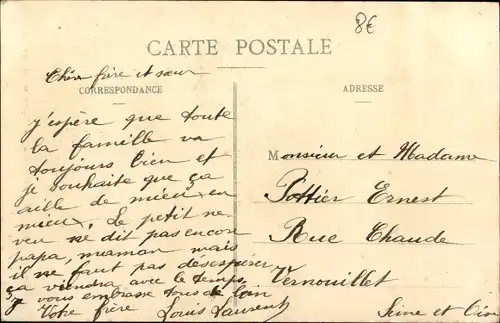 8€
CARTE POSTALE
Chers frère et sœur
CORRESPONDANCE
j'espère que toute
la famille va
toujours bien et
je souhaite que ça
aille de mieux en
mieux. Le petit ne-
veu ne dit pas encore
papa, maman mais
il ne faut pas désespérer
ça viendra avec le temps
J vous embrasse tous de loin
Votre frère Louis Laurent
ADRESSE
Monsieur et Madame
Pottier Ernest
Rue Chaude
Vernouillet
Seine et Oise